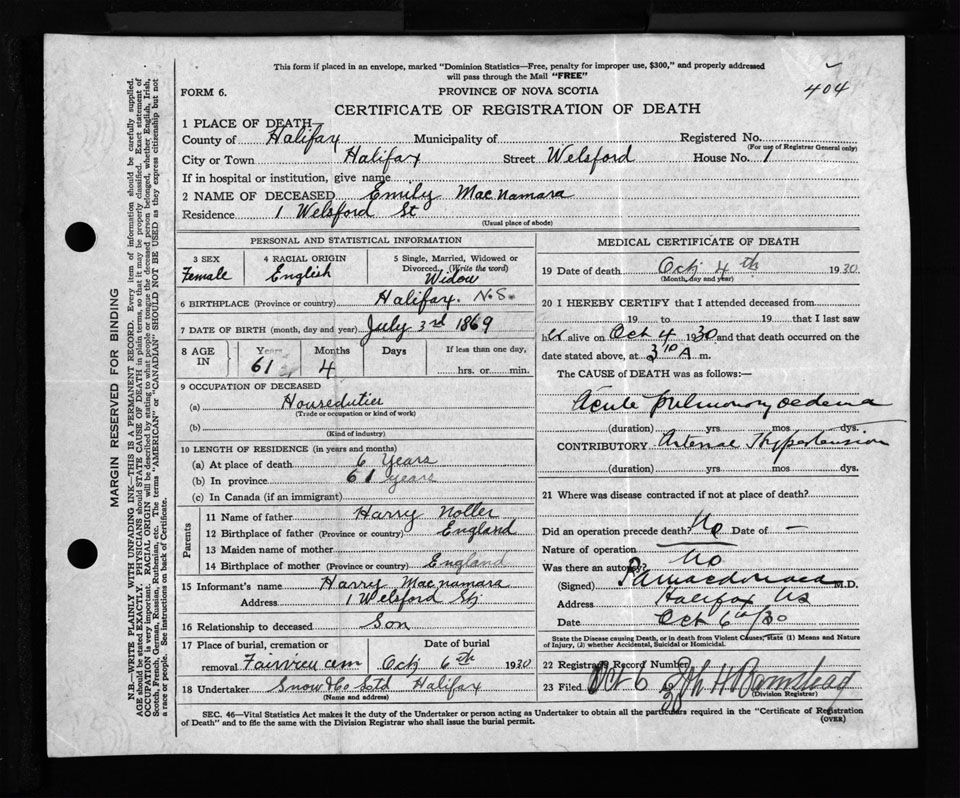 This form if placed in an envelope, marked "Dominion Statistics—Free, penalty for improper use, $300," and properly addressed
will pass through the Mail "FREE"
404
FORM 6.
PROVINCE OF NOVA SCOTIA
CERTIFICATE OF REGISTRATION OF DEATH
1 PLACE OF DEATH—
County of Halifax Municipality of Registered No.
(For use of Registrar General only)
City or Town Halifax Street Welsford House No. 1
If in hospital or institution, give name
2 NAME OF DECEASED Emily Macnamara
Residence 1 Welsford St
(Usual place of abode)
PERSONAL AND STATISTICAL INFORMATION
3 SEX 4 RACIAL ORIGIN 5 Single, Married, Widowed or
Divorced, (Write the word)
Female English Widow
6 BIRTHPLACE (Province or country) Halifax. N.S.
7 DATE OF BIRTH (month, day and year) July 3rd 1869
8 AGE IN Years Months Days If less than one day,
61 4 hrs. or min.
9 OCCUPATION OF DECEASED
(a) Houseduties
(Trade or occupation or kind of work)
(b)
(Kind of industry)
10 LENGTH OF RESIDENCE (in years and months)
(a) At place of death 6 Years
(b) In province 61 years
(c) In Canada (if an immigrant)
Parents
11 Name of father Harry Noller
12 Birthplace of father (Province or country) England
13 Maiden name of mother
14 Birthplace of mother (Province or country) England
15 Informant's name Harry Macnamara
Address 1 Welsford St
16 Relationship to deceased Son
17 Place of burial, cremation or Date of burial
removal Fairview cem Oct 6th 1930
18 Undertaker Snow & Co Ltd Halifax
(Name and address)
MEDICAL CERTIFICATE OF DEATH
19 Date of death Oct 4th 1930
(Month, day and year)
20 I HEREBY CERTIFY that I attended deceased from
19 to 19 that I last saw
her alive on Oct 4 1930 and that death occurred on the
date stated above, at 3 10 A m.
The CAUSE of DEATH was as follows:—
Acute pulmonary oedema
(duration) yrs mos dys.
CONTRIBUTORY Arterial Hypertension
(duration) yrs mos dys.
21 Where was disease contracted if not at place of death?
Did an operation precede death? No Date of —
Nature of operation
Was there an autopsy? No
(Signed) M.D.
Address Halifax NS
Date Oct 6th/30
State the Disease causing Death, or in death from Violent Causes, state (1) Means and Nature
of Injury, (2) whether Accidental, Suicidal or Homicidal.
22 Registrar's Record Number
23 Filed Oct 6 H Barnstead
(Division Registrar)
SEC. 46—Vital Statistics Act makes it the duty of the Undertaker or person acting as Undertaker to obtain all the particulars required in the "Certificate of Registration
of Death" and to file the same with the Division Registrar who shall issue the burial permit.
(OVER)
MARGIN RESERVED FOR BINDING
N.B.—WRITE PLAINLY WITH UNFADING INK—THIS IS A PERMANENT RECORD. Every item of information should be carefully supplied.
AGE should be stated EXACTLY. PHYSICIANS should STATE CAUSE OF DEATH in plain terms, so that it may be properly classified. Exact statement of
OCCUPATION is very important. RACIAL ORIGIN will be described by stating to what people or tongue the deceased person belonged, whether English, Irish,
Scotch, French, German, Russian, Ruthenian, etc. The terms "AMERICAN" or "CANADIAN" SHOULD NOT BE USED as they express citizenship but not
a race or people. See instructions on back of Certificate.